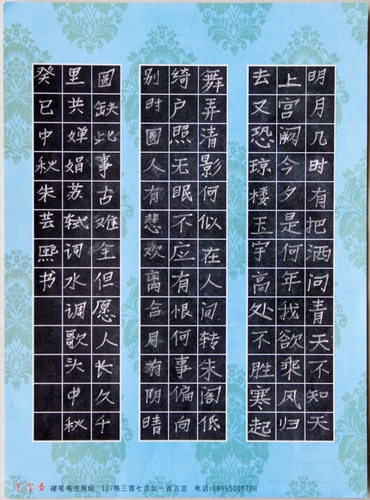 明月几时有把酒问青天不知天
上宫阙今夕是何年我欲乘风归
去又恐琼楼玉宇高处不胜寒起
舞弄清影何似在人间转朱阁低
绮户照无眠不应有恨何事偏向
别时圆人有悲欢离合月有阴晴
圆缺此事古难全但愿人长久千
里共婵娟苏轼词水调歌头中秋
癸巳中秋朱芸熙书
硬笔书法用纸 117格三首七言加一首五言 电话:18955005706